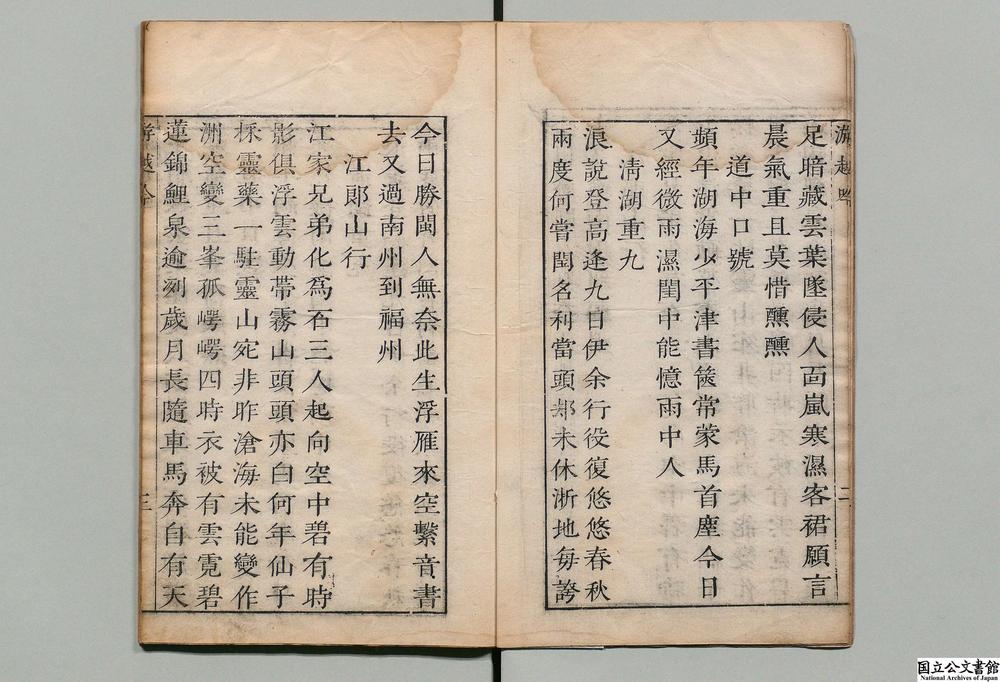 足暗藏雲葉墜侵人面嵐寒濕客裙願言
晨氣重且莫惜醺醺
道中口號
頻年湖海少平津書篋常蒙馬首塵今日
又經微雨濕閨中能憶雨中人
淸湖重九
浪說登高逢九日伊余行役復悠悠春秋
兩度何嘗閏名利當頭却未休浙地每誇
今日勝閩人無奈此生浮雁來空繫音書
去又過南州到福州
江郞山行
江家兄弟化爲石三人起向空中碧有時
影俱浮雲動帶霧山頭頭亦白何年仙子
採靈藥一駐靈山宛非昨滄海未能變作
洲空變三峯孤崿崿四時衣被有雲霓碧
蓮錦鯉泉逾冽歲月長隨車馬奔自有天
三
国立公文書館
National Archives of Japan